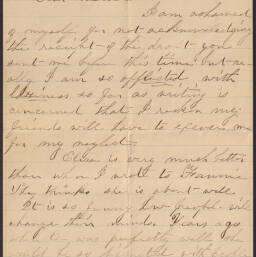 I am ashamed
of myself for not acknowledging
the receipt of the draft you
sent me before this time but re-
ally I am so afflicted with
laziness so far as writing is
concerned that I reckon my
friends will have to excuse me
for my neglect.
Eliza is very much better
than when I wrote to Fannie
She thinks she is about well
It is so funny how people will
change their minds. Years ago
when she was perfectly well she